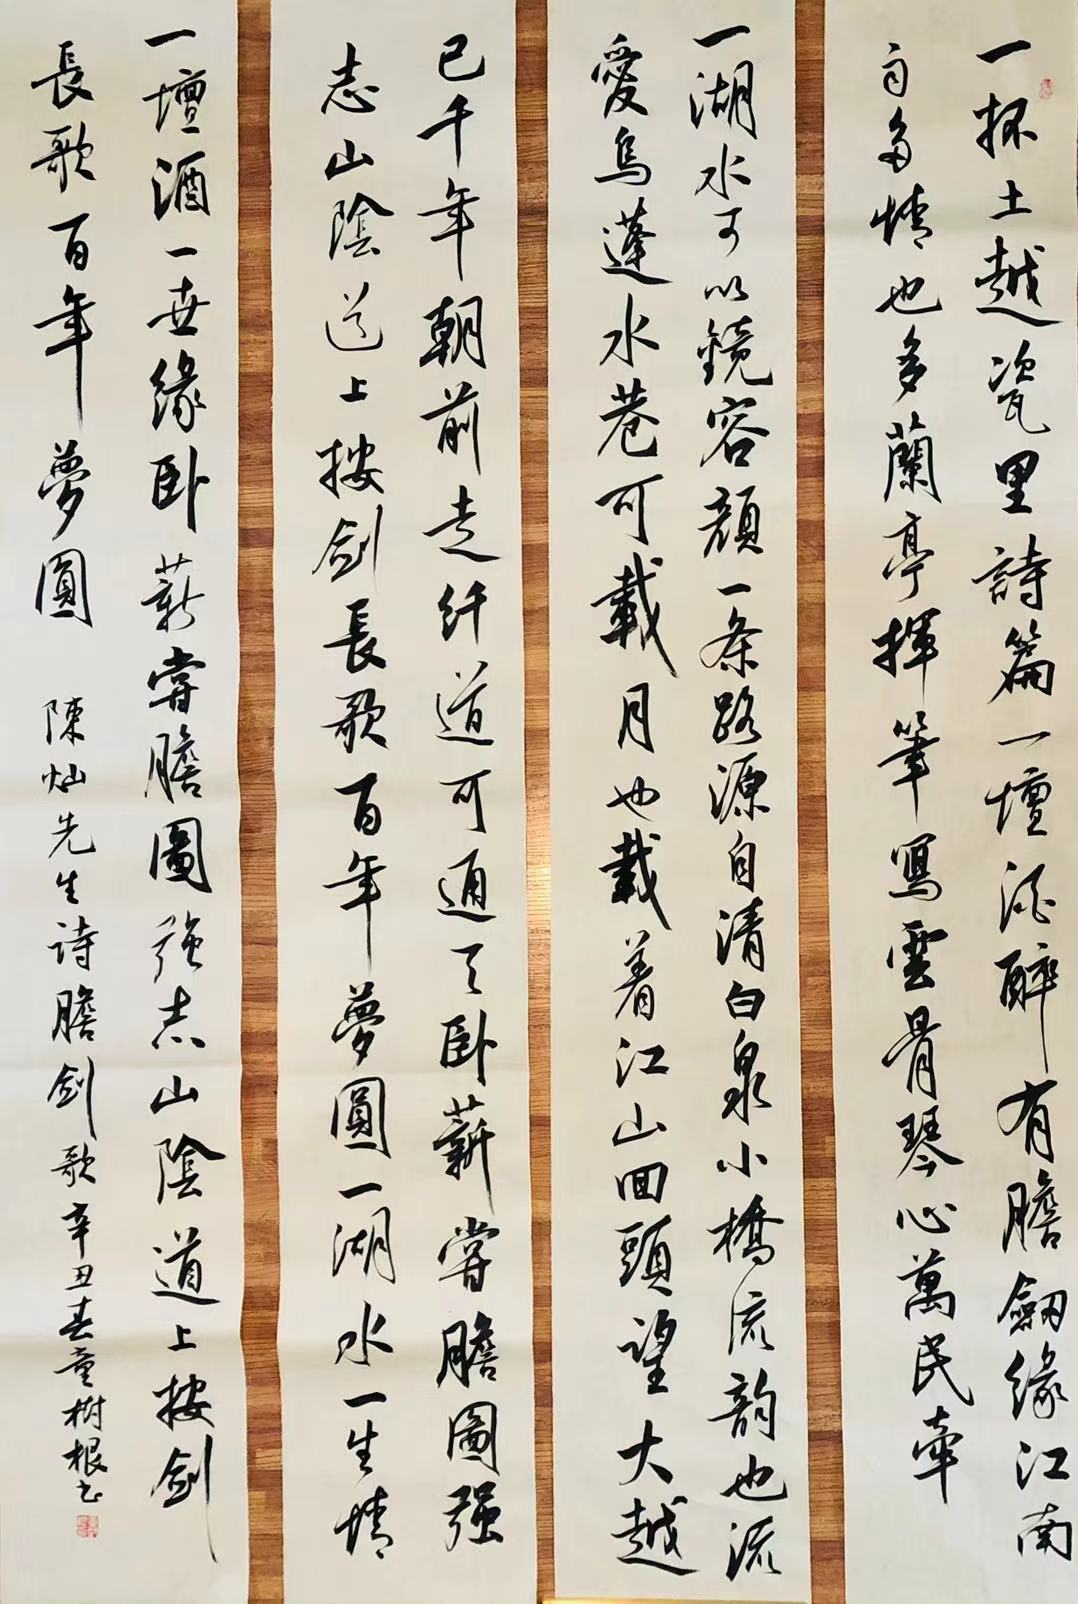 一抔土越瓷里詩篇一壇酒醉有膽劔缘江南
自多情也多蘭亭揮筆寫雲骨琴心萬民牽
一湖水可以鏡容顔一条路源自清白泉小橋流韵也流
愛烏蓬水巷可載月也載着江山回頭望大越
已千年朝前走纤道可通天卧薪嘗膽圖强
志山陰道上按劍長歌百年夢圓一湖水一生情
一壇酒一世缘卧薪嘗膽圖强志山陰道上按劍
長歌百年夢圓
陳灿先生詩膽剑歌辛丑春童樹根书